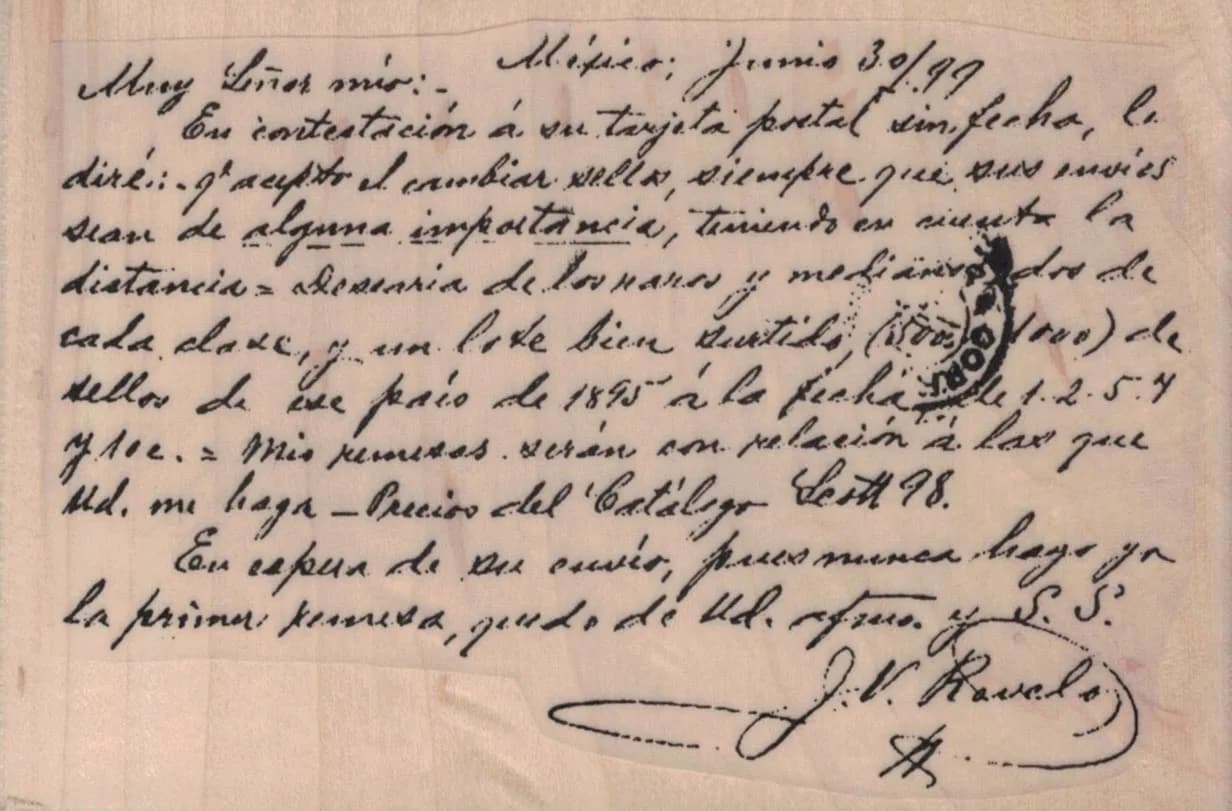 México; Junio 30/99
Muy Señor mío:-
En contestación á su tarjeta postal sin fecha, le
diré:- qe acepto el cambiar sellos, siempre que sus envíos
sean de alguna importancia, teniendo en cuenta la
distancia = Desearia de los raros y medianos dos de
cada clase, y un lote bien surtido, (500 1000) de
sellos de ese país de 1895 á la fecha de 1. 2. 5. 7
y 10 c. = Mis remesas serán con relación á las que
Ud. me haga - Precios del Catálogo Scott 98.
En espera de su envío, pues nunca hago yo
la primer remesa, quedo de Ud. afmo. y S. S.
J. V. Ravelo